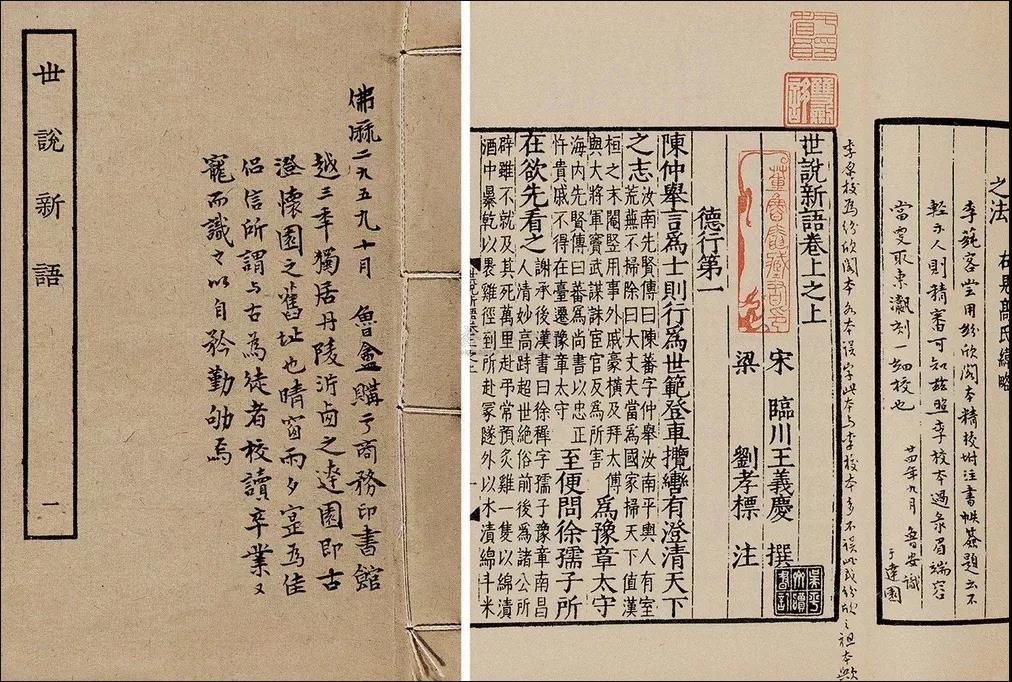 世說新語 一
佛厤二九五九十月 魯盦購于商務印書館
越三季獨居丹陵沂之達園即古
澄懷園之舊址也晴窗雨夕寔為佳
侶信所謂与古為徒者校讀卒業又
寵而識之以自矜勤劬焉
之法 右見高氏緯略
李蒓客嘗用紛欣閣本精校坿注書帙簽題云不
輕示人則精審可知茲照李校本過彔眉端容
當更取東瀛刻一勘校也 年九月 魯安識
于達園
校為紛欣閣本各本誤字此本与李校本多不誤此或紛欣之祖本歟
世說新語卷上之上
宋 臨川王義慶 撰
梁 劉孝標 注
德行第一
陳仲舉言爲士則行爲世範登車攬轡有澄清天下
之志
汝南先賢傳曰陳蕃字仲舉汝南平輿人有室
荒蕪不掃除曰大丈夫當爲國家掃天下值漢
桓之末閹豎用事外戚豪橫及拜太傅
與大將軍竇武謀誅宦官反爲所害
爲豫章太守
海內先賢傳曰蕃爲尚書以忠正
忤貴戚不得在臺遷豫章太守
至便問徐孺子所
在欲先看之
謝承後漢書曰徐穉字孺子豫章南昌
人清妙高跱超世絕俗前後爲諸公所
辟雖不就及其死萬里赴弔常預炙雞一隻以綿漬
酒中曝乾以裹雞徑到所赴冢隧外以水漬綿斗米